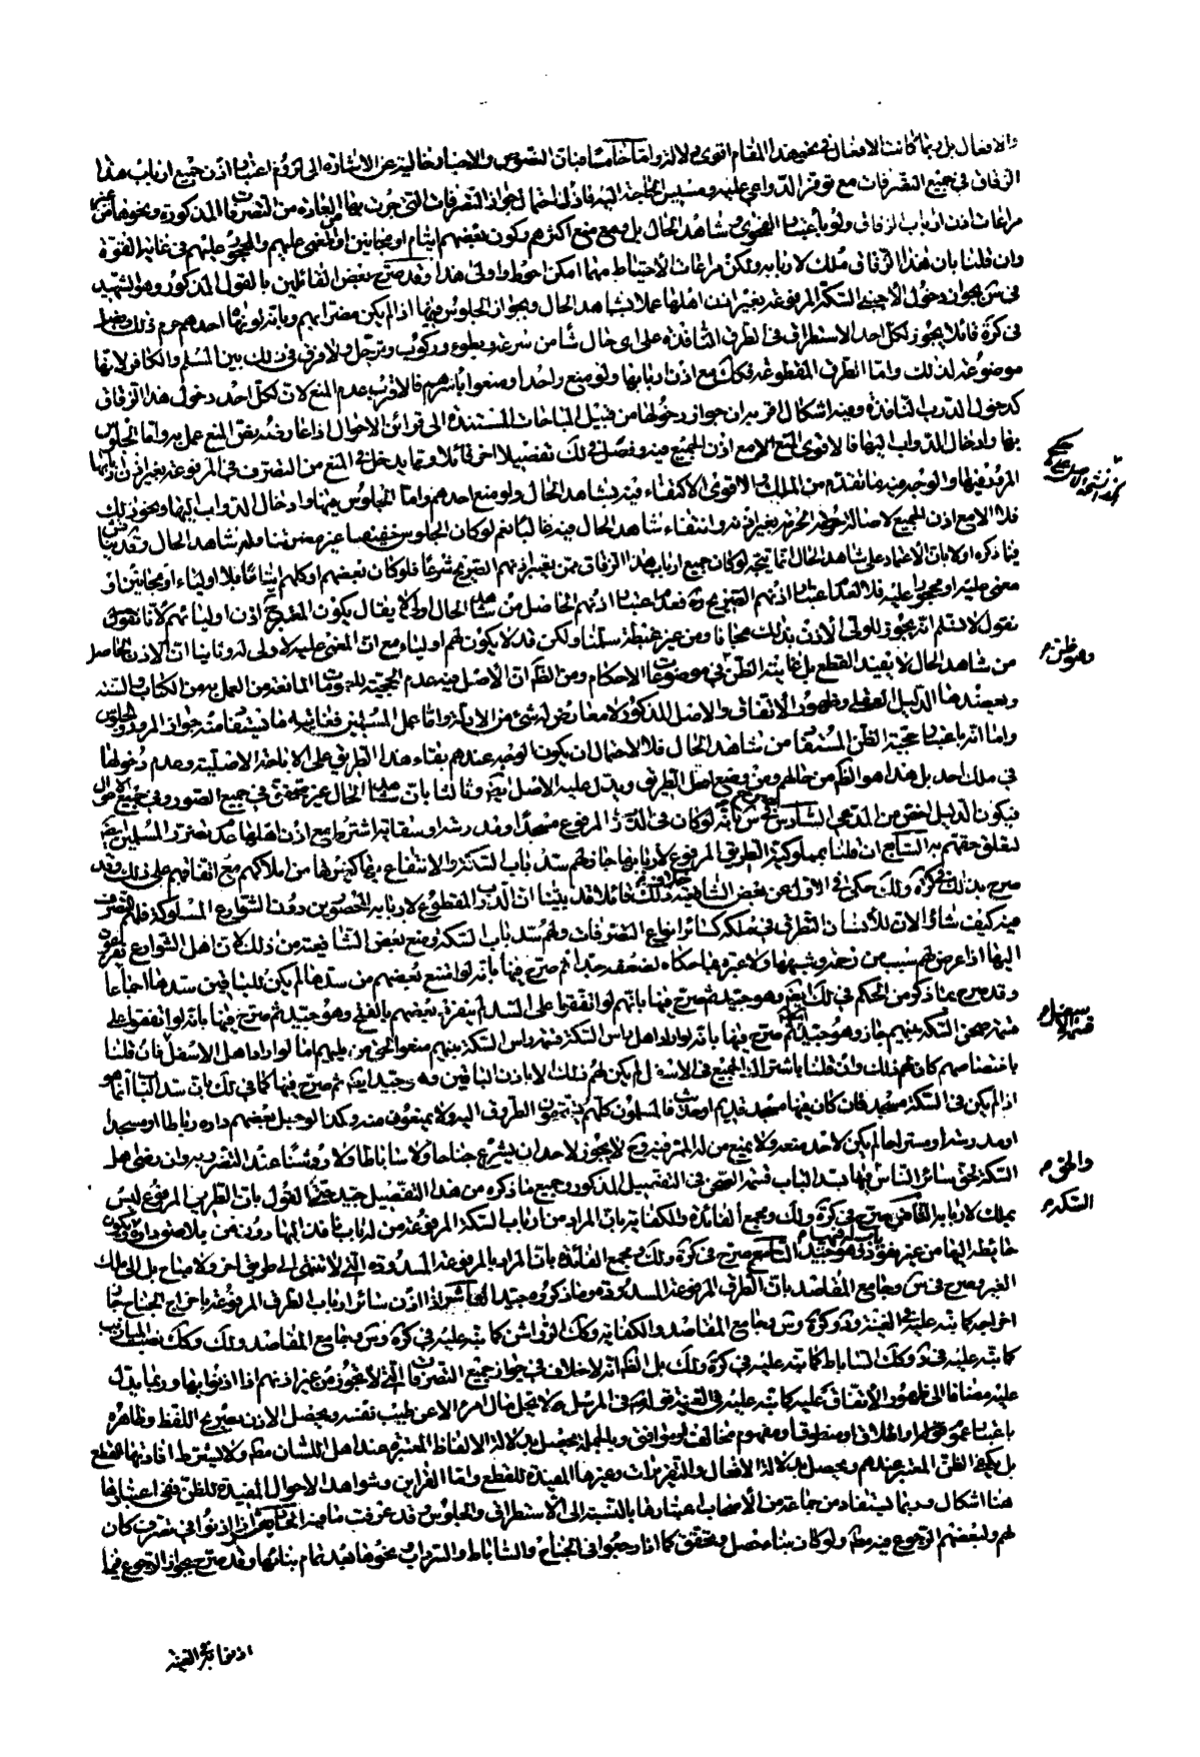 والافعال بل ربما كانت الافعال في هذا المقام اقوى دلالة واما خامسا فبان النصوص والاخبار خالية عن الاشارة الى لزوم اعتبار اذن جميع ارباب هذا
الزقاق في جميع التصرفات مع توفر الدواعي عليه ومسيس الحاجة اليه فاذن احتمال جواز التصرفات التي جرت بها العادة من التصرفات المذكورة ونحوها من غير
مراعات اذن ارباب الزقاق ولو باعتبار الفحوى و شاهد الحال بل ومع منع اكثرهم وكون بعضهم ايتام او مجانين او مغمى عليهم والمحجور عليهم في غاية القوة
وان قلنا بان هذا الزقاق ملك لاربابه ولكن مراعات الاحتياط مهما امكن احوط واولى هذا وقد صرح بعض القائلين بالقول المذكور وهو الشهيد
في س بجواز دخول الاجنبي السكة المرفوعة بغير اذن اهلها عملا بشاهد الحال وبجواز الجلوس فيها اذا لم يكن مضرا بهم ولو نهاه احدهم حرم ذلك
في كرة قائلا يجوز لكل احد الاستطراق في الطرق النافذة على اى حال شاء من سرعة وبطوء وركوب وترجل ولا فرق في ذلك بين المسلم والكافر لانها
موضوعة لذلك واما الطرق المقطوعة فكك مع اذن اربابها ولو منع واحد او منعوا باسرهم فالاقرب عدم المنع لان لكل احد دخول هذا الزقاق
كدخول الدرب النافذة وفيه اشكال اقربه ان جواز دخولها من قبيل المباحات المستندة الى قرائن الاحوال اذا عارضه نص المنع عمل به واما الجلوس
بها وادخال الدواب اليها فالاقوى المنع الا مع اذن الجميع فيه وفصل في لك تفصيلا اخر قائلا ومما يدخل في المنع من التصرف في المرفوعة بغير اذن اربابها
المرور فيها والوجه فيه ما تقدم من الملك و الاقوى الاكتفاء فيه بشاهد الحال ولو منع احدهم واما الجلوس فيها وادخال الدواب اليها ونحو ذلك
فلا الا مع اذن الجميع لاصالة حرمة مال الغير بغير اذنه وانتفاء شاهد الحال فيه غالبا نعم لو كان الجلوس خفيفا غير مضر تناوله شاهد الحال
فيما ذكره اولا بان الاعتماد على شاهد الحال انما يتجه لو كان جميع ارباب هذا الزقاق ممن يعتبر اذنهم الصريح شرعا فلو كان بعضهم او كلهم ايتاما بلا اولياء او مجانين او
مغمى عليه او محجورا عليه فلا لعدم اعتبار اذنهم الصريح فعدم اعتبار اذنهم الحاصل من شاهد الحال اولى لا يقال يكون المقدر ح اذن اوليائهم لانا نقول
نقول لا نسلم انه يجوز للولي الاذن بذلك مجانا ومن غير غبطة سلمنا ولكن قد لا يكون لهم اولياء مع ان المغمى عليه لا ولى له وثانيا ان الاذن الحاصل
من شاهد الحال لا يفيد القطع بل غايته الظن في موضوعات الاحكام ومن الظ ان الاصل فيه عدم الحجية للعمومات المانعة من العمل به من الكتاب والسنة
ويعضدها الدليل العقلي وظهور الاتفاق والاصل المذكور لا معارض له شيء من الادلة واما عمل المسلمين فغايته ما يستفاد منه جواز المرور والجلوس
واما انه باعتبار حجية الظن المستفاد من شاهد الحال فلا لاحتمال ان يكون الوجه عندهم بقاء هذا الطريق على الاباحة الاصلية وعدم دخولها
في ملك احد بل هذا هو الظ من حالهم ومن وضع اصل الطريق ويدل عليه الاصل ايضا وثالثا بان شاهد الحال غير متحقق في جميع الصور وفي جميع الاحوال
فيكون الدليل اخص من المدعى السادس صرح في س بانه لو كان في الدرب المرفوع مسجدا وقد رشد او سقاية اشترط مع اذن اهلها عدم تضرر المسلمين ايضا
لتعلق حقهم به السابع ان قلنا بمملوكية الطريق المرفوع لاربابها جاز لهم سد باب السكة والانتفاع بها كغيرها من املاكهم مع اتفاقهم على ذلك وقد
صرح بذلك في كرة ولك وحكى في الاول عن بعض الشافعية خلاف ذلك قائلا قد بينا ان الدرب المقطوع لاربابه المخصوصين دون الشوارع المسلوكة فلهم التصرف
فيه كيف شاؤا لان للانسان التصرف في ملكه كسائر انواع التصرفات ولهم سد باب السكة ومنع بعض الشافعية من ذلك لان اهل الشوارع يفزعون
اليها اذا عرض لهم سبب من زحمة وشبهها ولا عبرة بما حكاه لضعفه جدا ثم صرح فيها بانه لو امتنع بعضهم من سدها لم يكن للباقين سدها اجماعا
وقد صرح بما ذكر من الحكم في لك ايضا وهو جيد ثم صرح فيها بانهم لو اتفقوا على السد لم ينفرد بعضهم بالفتح وهو جيد ثم صرح فيها بانه لو اتفقوا على
قسمة صحن السكة بينهم جاز وهو جيد ثم صرح فيها بانه لو اراد اهل راس السكة قسمة راس السكة بينهم منعوا لحق من يليهم اما لو اراد اهل الاسفل فان قلنا
باختصاصهم كان لهم ذلك وان قلنا باشتراك الجميع في الاسفل لم يكن لهم ذلك الا باذن الباقين وهو جيد ايضا ثم صرح فيها كما في لك بان سد الباب انما هو
اذا لم يكن في السكة مسجد فان كان فيها مسجد قديم او حادث فالمسلمون كلهم يستحقون الطروق اليه ولا يمنعون منه وكذا لو جعل بعضهم داره رباطا او مسجدا
او مدرسة او مستراحا لم يكن لاحد منعه ولا يمنع من له الممر فيه وح لا يجوز لاحد ان يشرع جناحا ولا ساباطا ولا روشنا عند التضرر به وان رضى اهل
السكة لحق سائر الناس فيها بسد الباب قسمة الصحن في التفصيل المذكور وجميع ما ذكره من هذا التفصيل جيد على القول بان الطريق المرفوع ليس
بملك لاربابه الثامن صرح في كرة ولك ومجمع الفائدة والكفاية بان المراد من ارباب السكة المرفوعة من له باب نافذ اليها دون من يلاصق داره ويكون
حائطه اليها من غير نفوذ وهو جيد التاسع صرح في كرة ولك ومجمع الفائدة بان المراد بالمرفوعة المسدودة التي لا تنتهى الى طريق اخر ولا مباح بل الى ملك
الغير وصرح في س وجامع المقاصد بان الطرق المرفوعة المسدودة وما ذكروه جيد العاشر اذا اذن سائر ارباب الطرق المرفوعة باخراج الجناح جاز
اخراجه كما نبه عليه في الغنية و كرة و س وجامع المقاصد والكفاية وكك الرواشن كما نبه عليه في كرة وس وجامع المقاصد ولك وكك نصب الميازيب
كما نبه عليه في و كك الساباط كما نبه عليه في كرة ولك بل الظ انه لا خلاف في جواز جميع التصرفات التي لا تجوز من غير اذنهم اذا اذنوا بها وربما يدل
عليه مضافا الى ظهور الاتفاق عليه كما نبه عليه في الغنية قوله في المرسل لا يحل مال امرء الا عن طيب نفسه ويحصل الاذن بصريح اللفظ وظاهره
باعتبار عمومه واطلاقه ومنطوقه ومفهوم مخالفة وموافقة وبالجملة يحصل بدلالة الالفاظ المعتبرة عند اهل اللسان مط ولا يشترط افادتها القطع
بل يكفى الظن المعتبر عندهم ويحصل بدلالة الافعال والتقريرات وغيرها المفيدة للقطع واما القرائن وشواهد الاحوال المفيدة للظن ففي اعتبارها
هنا اشكال وربما يستفاد من جماعة من الاصحاب اعتبارها بالنسبة الى الاستطراق والجلوس وقد عرفت ما فيه الحادي عشر اذا اذنوا في تصرف كان
لهم ولبعضهم الرجوع فيه مط ولو كان بناء متصل وتحقق كما اذا رجعوا في الجناح والساباط والسرداب ونحوها بعد تمام بنائها وقد صرح بجواز الرجوع فيما
وهو ظن
قسمة الاسفل
والحق
السكة
اذنوا فيه في الغنية